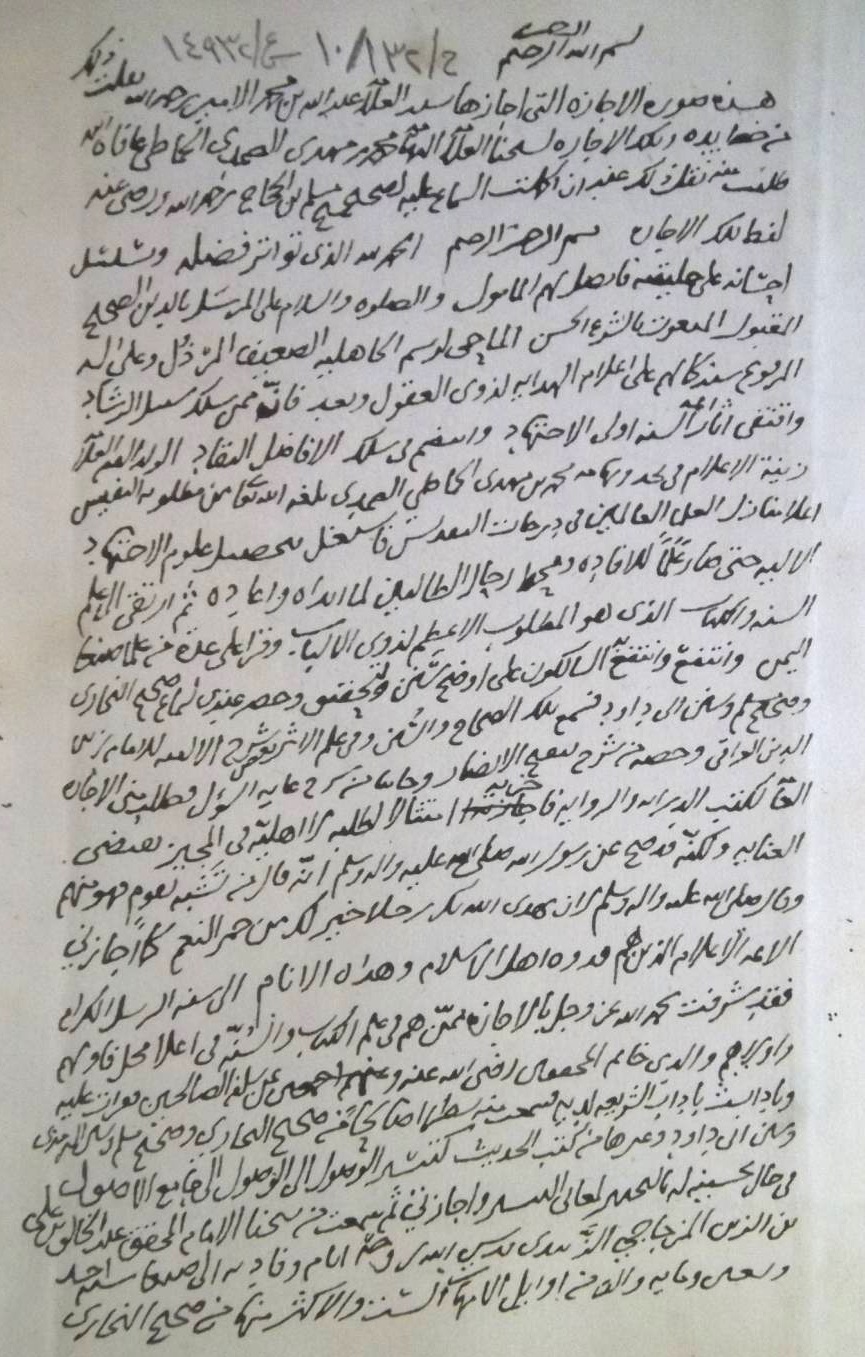 بسم الله الرحمن الرحيم
ح/١٠/١٣٢ ع/١٤٩٣٢
هذه صورة الاجازة التي اجازها سيد العلامة عبد الله بن محمد الامير رحمه الله نقلت ذلك
من خط يده وتلك الاجازه لشيخنا العلامة محمد بن مهدي الصمدي الحماطي عافاه الله
نقلت ذلك عقيب ان اكملت السماع عليه لصحيح مسلم بن الحجاج رحمه الله ورضي عنه
لفظ تلك الاجازة بسم الله الرحمن الرحيم الحمد لله الذي تواتر فضله وتسلسل
احسانه على خليقته فاتصل بهم المامول والصلوة والسلام على المرسل بالدين الصحيح
المقبول المنعوت بالشرع الحسن الماحي لرسم الجاهلية الضعيف المرذول وعلى اله
المرفوع سند كمالهم على اعلام الهدايه لذوي العقول وبعد فانه ممن سلك سبيل الرشاد
واقتفى اثار ائمة السنه اولى الاجتهاد وانتضم في سلك الافاضل النقاد الولد العلامة
زينة الاعلام في محمد بن مهدي الحماطي الصمدي بلغه الله تعالى من مطلوبه النفيس
اعلا منازل العلماء العاملين في درجات التقديس فاشتغل بتحصيل علوم الاجتهاد
الاليه حتى صار علما للافاده ومحط رحال الطالبين لما ابداه واعاده ثم ارتقى الى علم
السنه والكتاب الذي هو المطلوب الاعظم لذوي الالباب وقرا على عدة من علما صنعا
اليمن وانتفع وانتفع السالكون على اوضح سنن وتحقق وحضر عندي لسماع صحيح البخاري
وصحيح مسلم وسنن ابي داود فسمع تلك الصحاح والسنن وفي علم الاثر شرح الالفيه للامام زين
الدين العراقي وحصه من شرح تنقيح الانضار وجانبا من شرح غاية السؤل وطلب مني الاجازة
لكتب الدرايه والروايه فاجازته امتثالا لطلبه لا اهلية في المجيز تقتضي
العنايه ولكنه قد صح عن رسول الله صلى الله عليه واله وسلم انه قال من تشبه بقوم فهو منهم
وقال صلى الله عليه واله وسلم لان يهدى الله بك رجلا خير لك من حمر النعم كما اجازني
الائمه الاعلام الذين هم قدوة اهل الاسلام وهداة الانام الى سنة الرسل الكرام
فقد شرفت بحمد الله عز وجل بالاجازه ممن هم في علم الكتاب والسنة في اعلا محل
واولاهم والدي خاتم المحققين رضي الله عنه وعنهم اجمعين عن سلفه الصالحين قرات عليه
وتادبت باداب الشريعه لديه فسمعت منه صحيح البخاري وصحيح مسلم
وسنن ابي داود وغيرها من كتب الحديث كتيسير الوصول الى جامع الاصول
في حال تحسينه له بالتحبير لمعاني التيسير واجازني ثم سمعت من شيخنا الامام المحقق عبد الخالق بن علي
بن الزين المزجاجي الزبيدي قدس الله روحه ايام وفاده الى صنعا سنة احد
وسبعين ومايه والف من اوايل الامهات الست والاكثر منها من صحيح البخاري